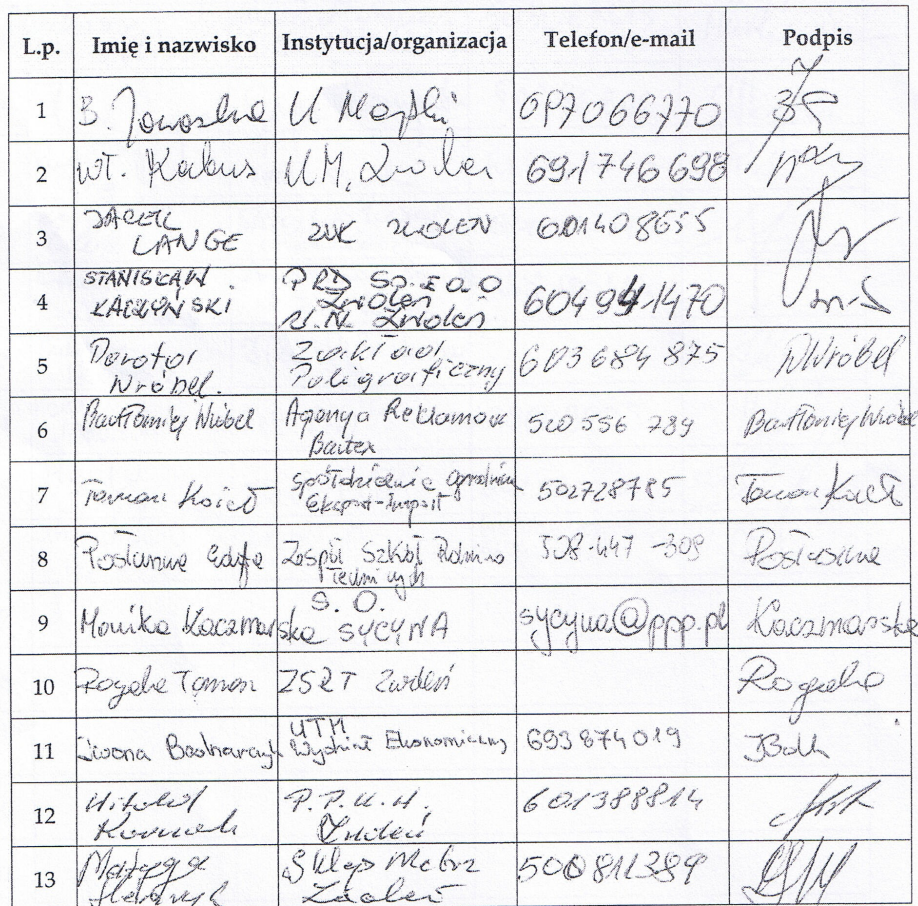 L.p. Imię i nazwisko Instytucja/organizacja Telefon/e-mail Podpis
1 B. U 697066770
2 WT. Kabus UM. Zwoleń 691746698
3 JACEK LANGE ZUK ZWOLEŃ 601408655
4 STANISŁAW PRD SP. Z O.O Zwoleń 604941470
5 Dorota Wróbel. Zakład Poligraficzny 603 684 875 DWróbel
6 Bartłomiej Wróbel Agencja Reklamowa Bartex 520 556 789 Bartłomiej Wróbel
7 Tomasz Spółdzielnia Eksport-Import 502728785 Tomasz
8 Zespół Szkół Rolniczo Technicznych 508-447-309
9 Monika Kaczmarska S. O. SYCYNA sycyna@ppp.pl Kaczmarska
10 Rogala Tomasz ZSRT Zwoleń Rogala
11 Iwona Bednarczyk UTH Wydział Ekonomiczny 693874019
12 Witold P.P.U.H. Zwoleń 601388814
13 Henryk Sklep Zwoleń 500811389